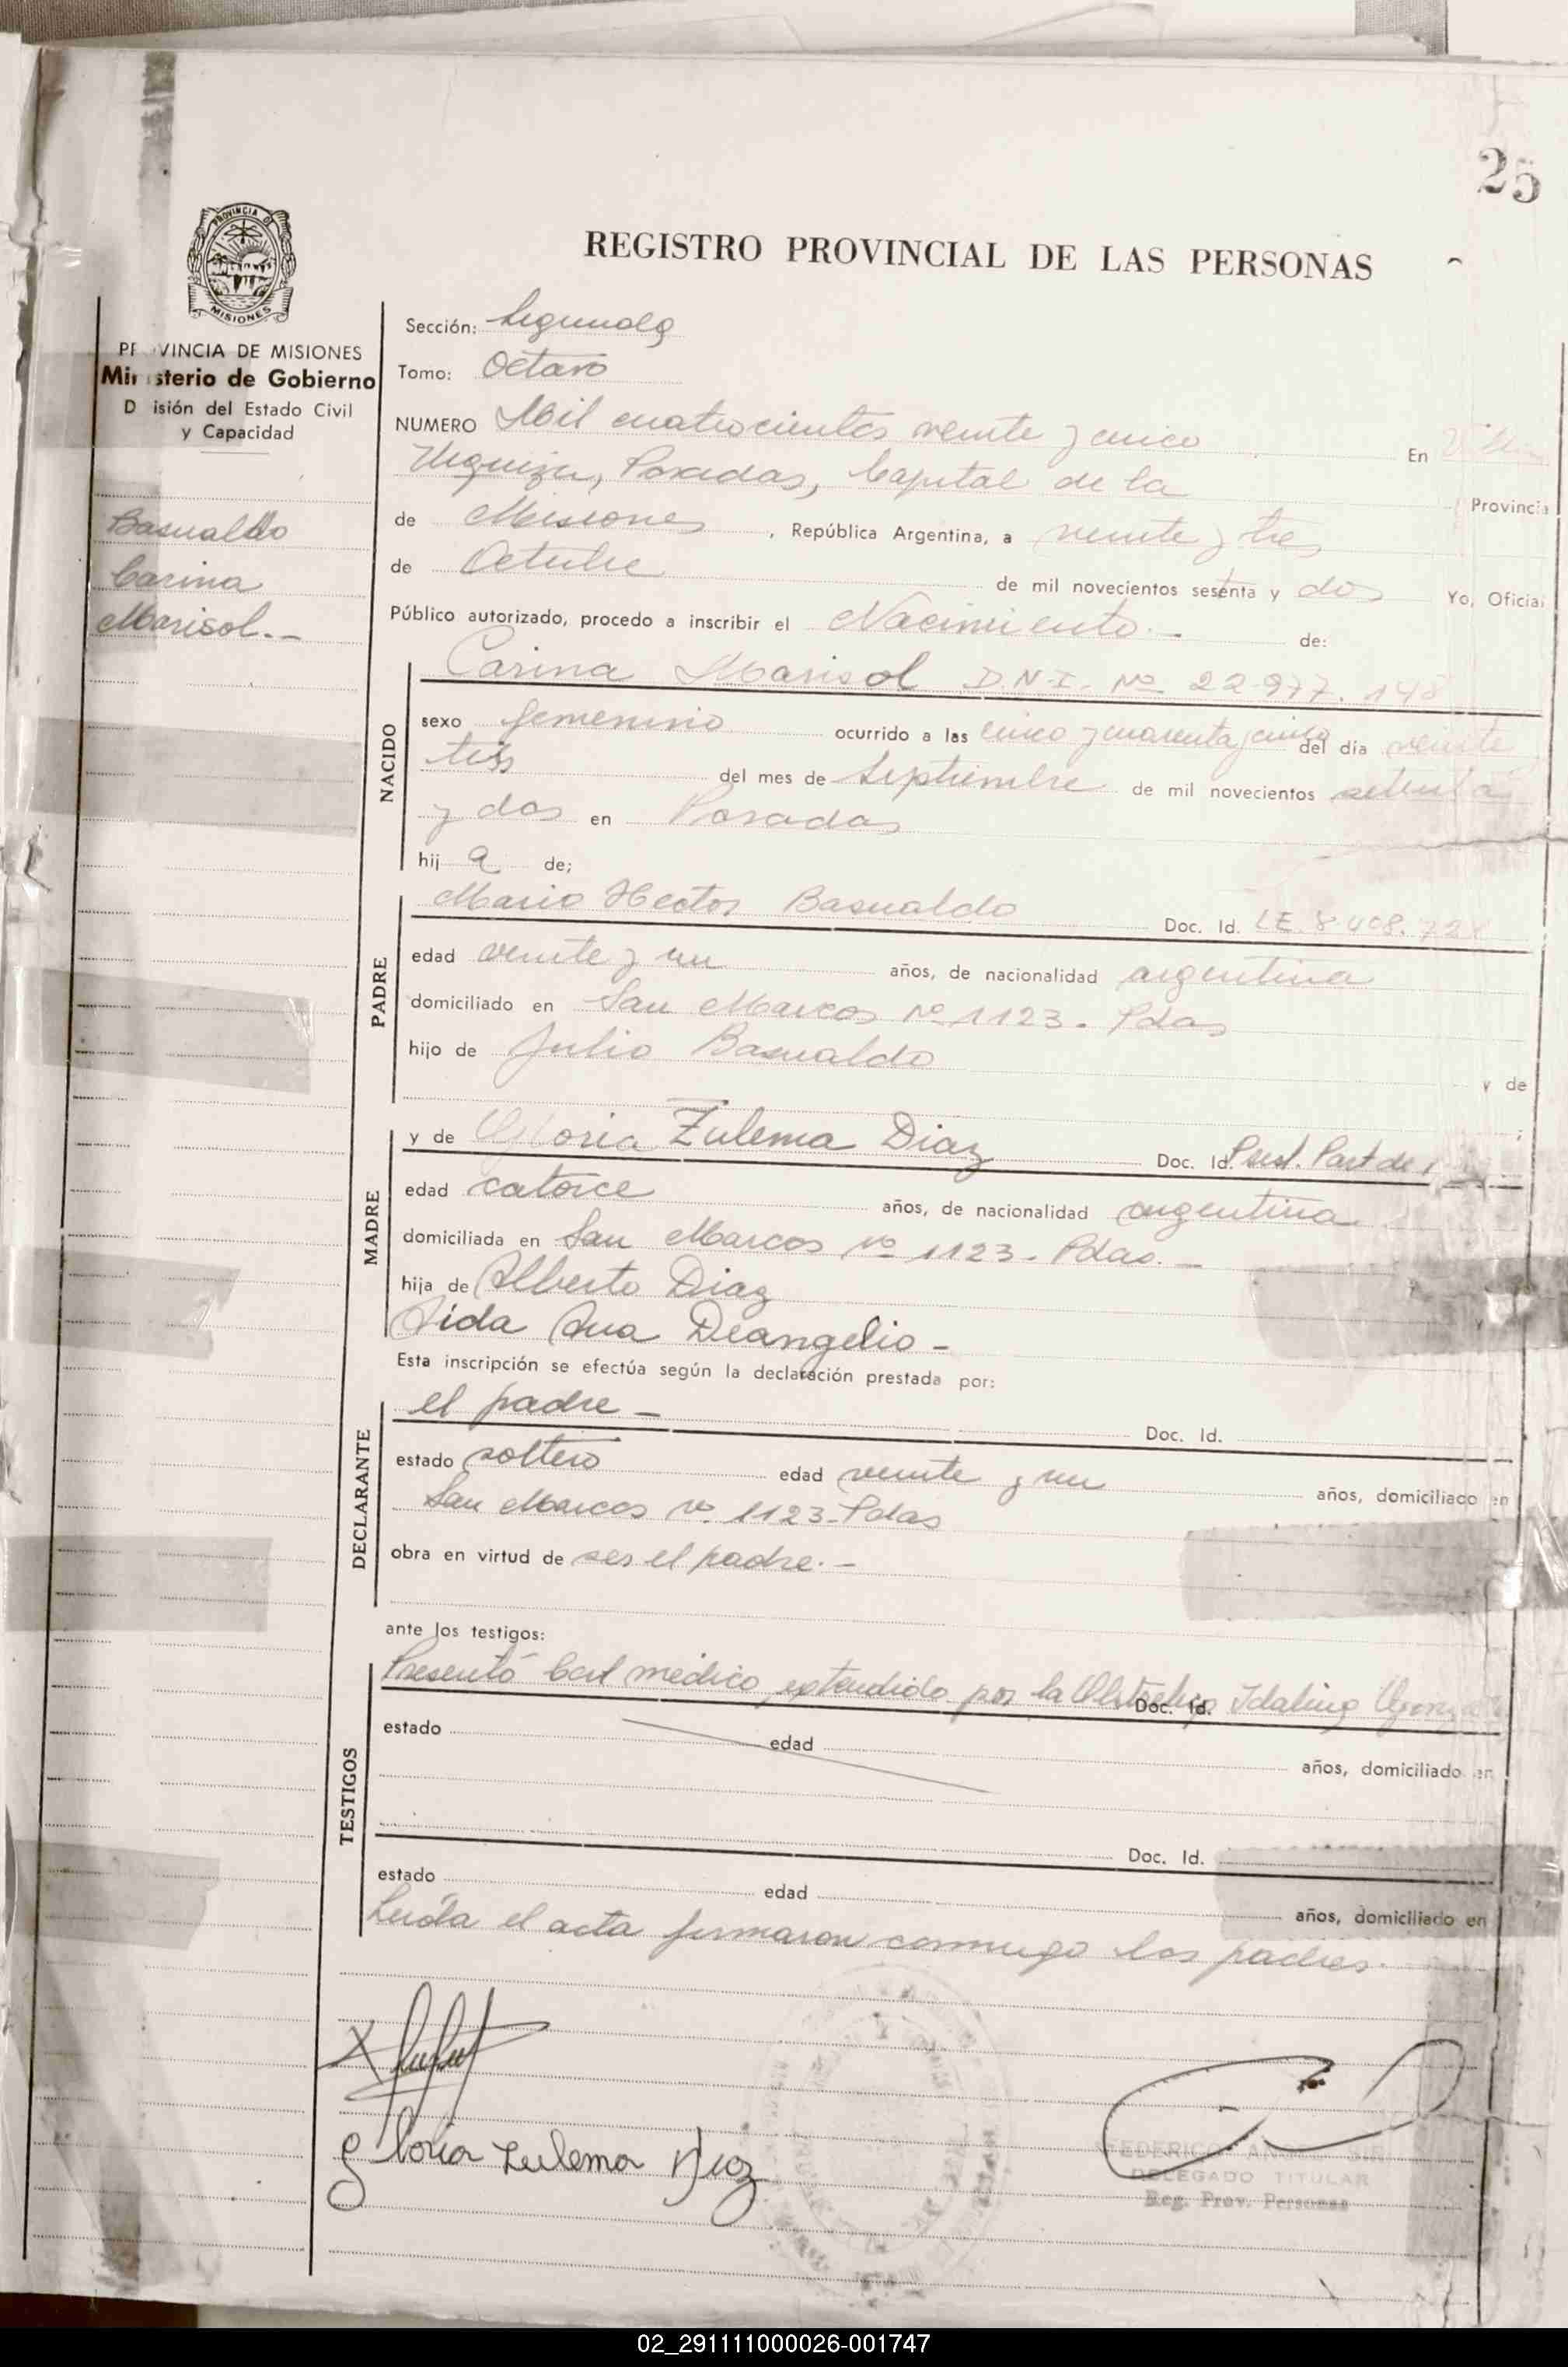 25
REGISTRO PROVINCIAL DE LAS PERSONAS
PROVINCIA DE
MISIONES
PR VINCIA DE MISIONES
Mi sterio de Gobierno
D isión del Estado Civil
y Capacidad
Basualdo
Carina
Marisol.-
Sección: Segunda
Tomo: Octavo
NUMERO Mil cuatrocientos veinte y cinco En Villa
Urquiza, Posadas, Capital de la Provincia
de Misiones, República Argentina, a veinte y tres
de Octubre de mil novecientos sesenta y dos Yo, Oficial
Público autorizado, procedo a inscribir el Nacimiento.- de:
Carina Marisol D.N.I. Nº 22.977.148
NACIDO
sexo femenino ocurrido a las cinco y cuarenta y cinco del día veinte
tres del mes de Septiembre de mil novecientos setenta
y dos en Posadas
hij a de;
PADRE
Mario Hector Basualdo Doc. Id. LE. 8.408.
edad veinte y un años, de nacionalidad argentina
domiciliado en San Marcos Nº 1123. Pdas
hijo de Julio Basualdo y de
MADRE
y de Gloria Zulema Diaz Doc. Id. Prest. Part de
edad catorce años, de nacionalidad argentina
domiciliada en San Marcos Nº 1123. Pdas.-
hija de Alberto Diaz
Aida Ana Deangelio -
Esta inscripción se efectúa según la declaración prestada por:
DECLARANTE
el padre - Doc. Id.
estado soltero edad veinte y un años, domiciliado en
San Marcos Nº 1123-Pdas
obra en virtud de ser el padre.-
ante los testigos:
TESTIGOS
Presentó Cert medico, extendido por la Obstetrica Idalina Doc. Id.
estado edad años, domiciliado en
Doc. Id.
estado edad años, domiciliado en
Leída el acta firmaron conmigo los padres.
Gloria Zulema Diaz
FEDERICO
DELEGADO TITULAR
Reg. Prov. Personas
02_291111000026-001747